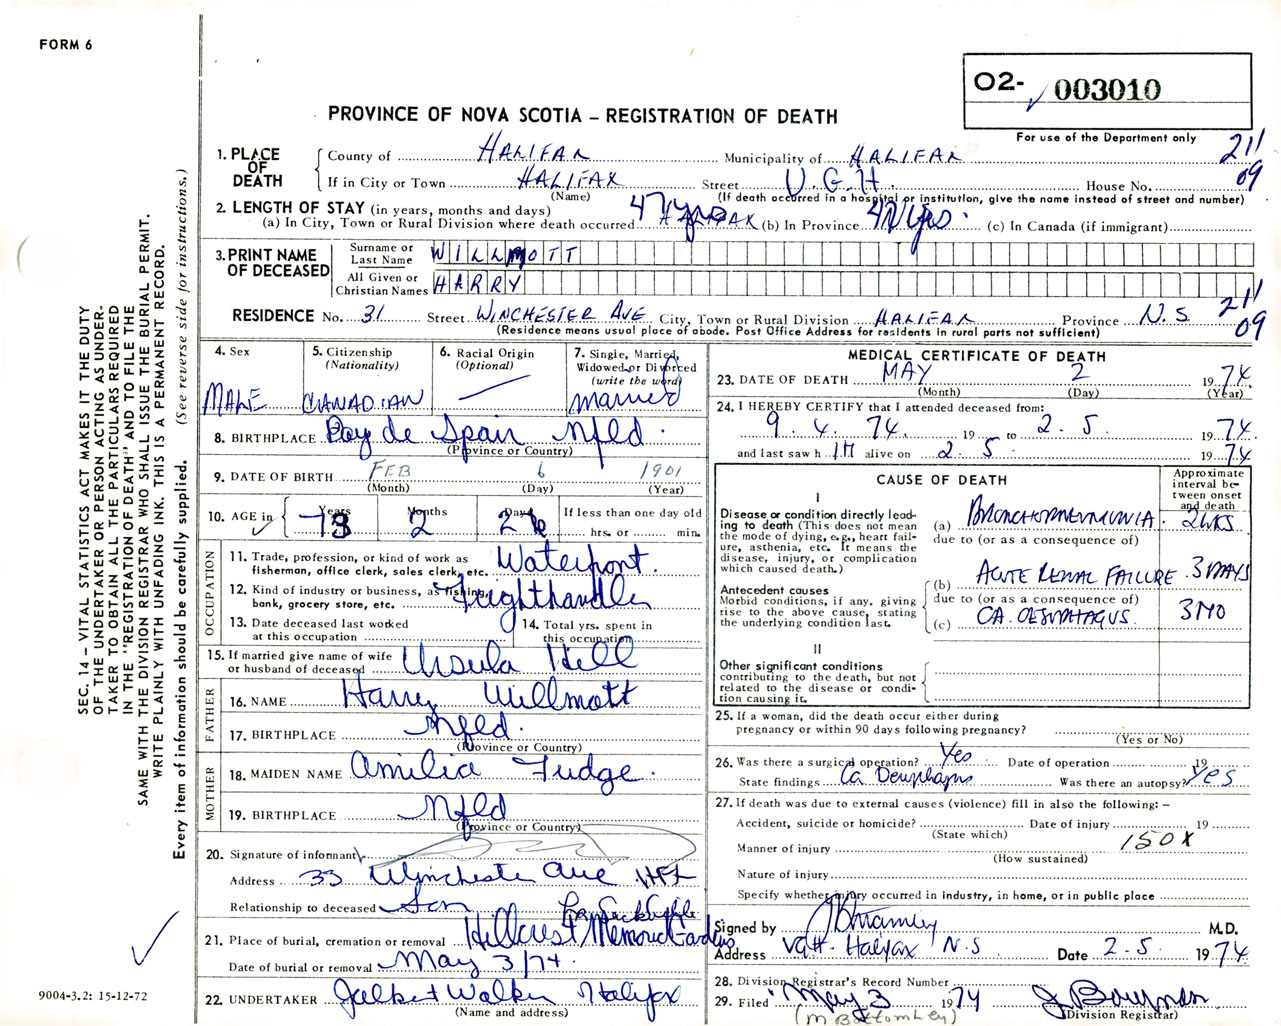 FORM 6
O2- 003010
For use of the Department only
PROVINCE OF NOVA SCOTIA – REGISTRATION OF DEATH
211
09
1. PLACE OF DEATH
County of HALIFAX Municipality of HALIFAX
If in City or Town HALIFAX Street V.G.H. House No.
(Name) (If death occurred in a hospital or institution, give the name instead of street and number)
2. LENGTH OF STAY (in years, months and days)
(a) In City, Town or Rural Division where death occurred 47 yrs HALIFAX (b) In Province 47 yrs. (c) In Canada (if immigrant)
3. PRINT NAME OF DECEASED
Surname or Last Name WILLMOTT
All Given or Christian Names HARRY
RESIDENCE No. 31 Street WINCHESTER AVE City, Town or Rural Division HALIFAX Province N.S.
(Residence means usual place of abode. Post Office Address for residents in rural parts not sufficient)
211
09
4. Sex MALE
5. Citizenship (Nationality) CANADIAN
6. Racial Origin (Optional) —
7. Single, Married, Widowed or Divorced (write the word) Married
8. BIRTHPLACE Bay de Spair Nfld.
(Province or Country)
9. DATE OF BIRTH FEB 6 1901
(Month) (Day) (Year)
10. AGE in Years Months Days If less than one day old
73 2 26 hrs. or min.
OCCUPATION
11. Trade, profession, or kind of work as fisherman, office clerk, sales clerk, etc. Waterfront.
12. Kind of industry or business, as fishing, bank, grocery store, etc. Frighthandler
13. Date deceased last worked at this occupation
14. Total yrs. spent in this occupation
15. If married give name of wife or husband of deceased Ursula Hill
FATHER
16. NAME Harry Willmott
17. BIRTHPLACE Nfld.
(Province or Country)
MOTHER
18. MAIDEN NAME Amilia Fudge.
19. BIRTHPLACE Nfld
(Province or Country)
20. Signature of informant
Address 33 Winchester Ave HFX
Relationship to deceased Son
21. Place of burial, cremation or removal Hillcrest Memorial Gardens
Date of burial or removal May 3/74.
22. UNDERTAKER Walker Halifax
(Name and address)
MEDICAL CERTIFICATE OF DEATH
23. DATE OF DEATH MAY 2 1974
(Month) (Day) (Year)
24. I HEREBY CERTIFY that I attended deceased from:
9. 4. 74. 19 to 2. 5. 1974
and last saw h IM alive on 2. 5. 1974
CAUSE OF DEATH
Approximate interval between onset and death
I
Disease or condition directly leading to death (This does not mean the mode of dying, e.g., heart failure, asthenia, etc. It means the disease, injury, or complication which caused death.)
(a) BRONCHOPNEUMONIA. 2 WKS
due to (or as a consequence of)
Antecedent causes
Morbid conditions, if any, giving rise to the above cause, stating the underlying condition last.
(b) ACUTE RENAL FAILURE 3 DAYS
due to (or as a consequence of)
(c) CA. OESOPHAGUS. 3 MO
II
Other significant conditions contributing to the death, but not related to the disease or condition causing it.
25. If a woman, did the death occur either during pregnancy or within 90 days following pregnancy?
(Yes or No)
26. Was there a surgical operation? Yes Date of operation 19
State findings Ca Oesophagus Was there an autopsy? Yes
27. If death was due to external causes (violence) fill in also the following: –
Accident, suicide or homicide? Date of injury 19
(State which)
150X
Manner of injury
(How sustained)
Nature of injury
Specify whether injury occurred in industry, in home, or in public place
Signed by M.D.
Address VGH. Halifax N.S Date 2.5. 1974
28. Division Registrar's Record Number
29. Filed May 3 1974
(M Bottomley) (Division Registrar)
SEC. 14 – VITAL STATISTICS ACT MAKES IT THE DUTY
OF THE UNDERTAKER OR PERSON ACTING AS UNDER-
TAKER TO OBTAIN ALL THE PARTICULARS REQUIRED
IN THE "REGISTRATION OF DEATH" AND TO FILE THE
SAME WITH THE DIVISION REGISTRAR WHO SHALL ISSUE THE BURIAL PERMIT.
WRITE PLAINLY WITH UNFADING INK. THIS IS A PERMANENT RECORD.
Every item of information should be carefully supplied. (See reverse side for instructions.)
9004-3.2: 15-12-72